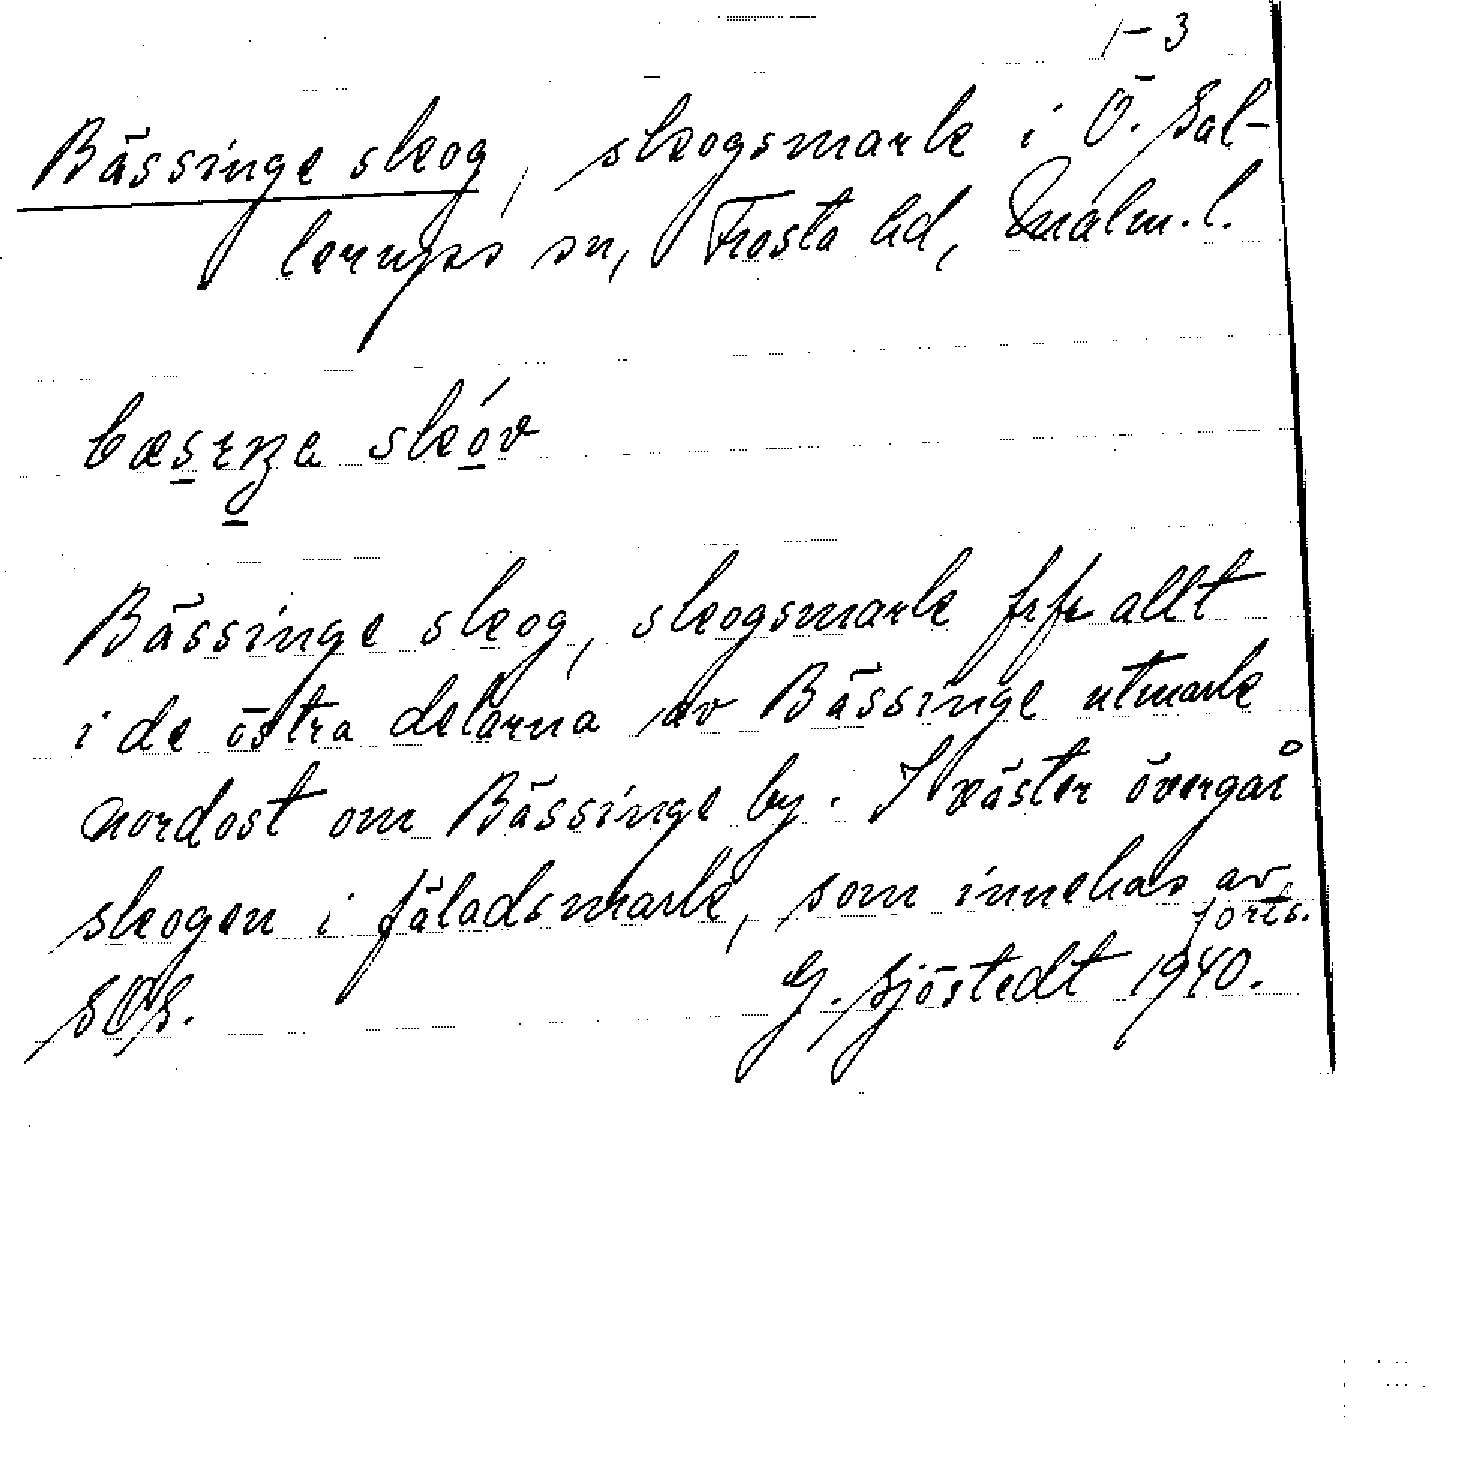 1-3
Bässinge skog, skogsmark i Ö. Sal-
lerups sn, Frosta hd, Malm. l.
skóv
Bässinge skog, skogsmark frfr allt
i de östra delarna av Bässinge utmark
nordost om Bässinge by. I väster övergår
skogen i fäladsmark, som innehas av
forts.
SOS. G. Sjöstedt 1940.